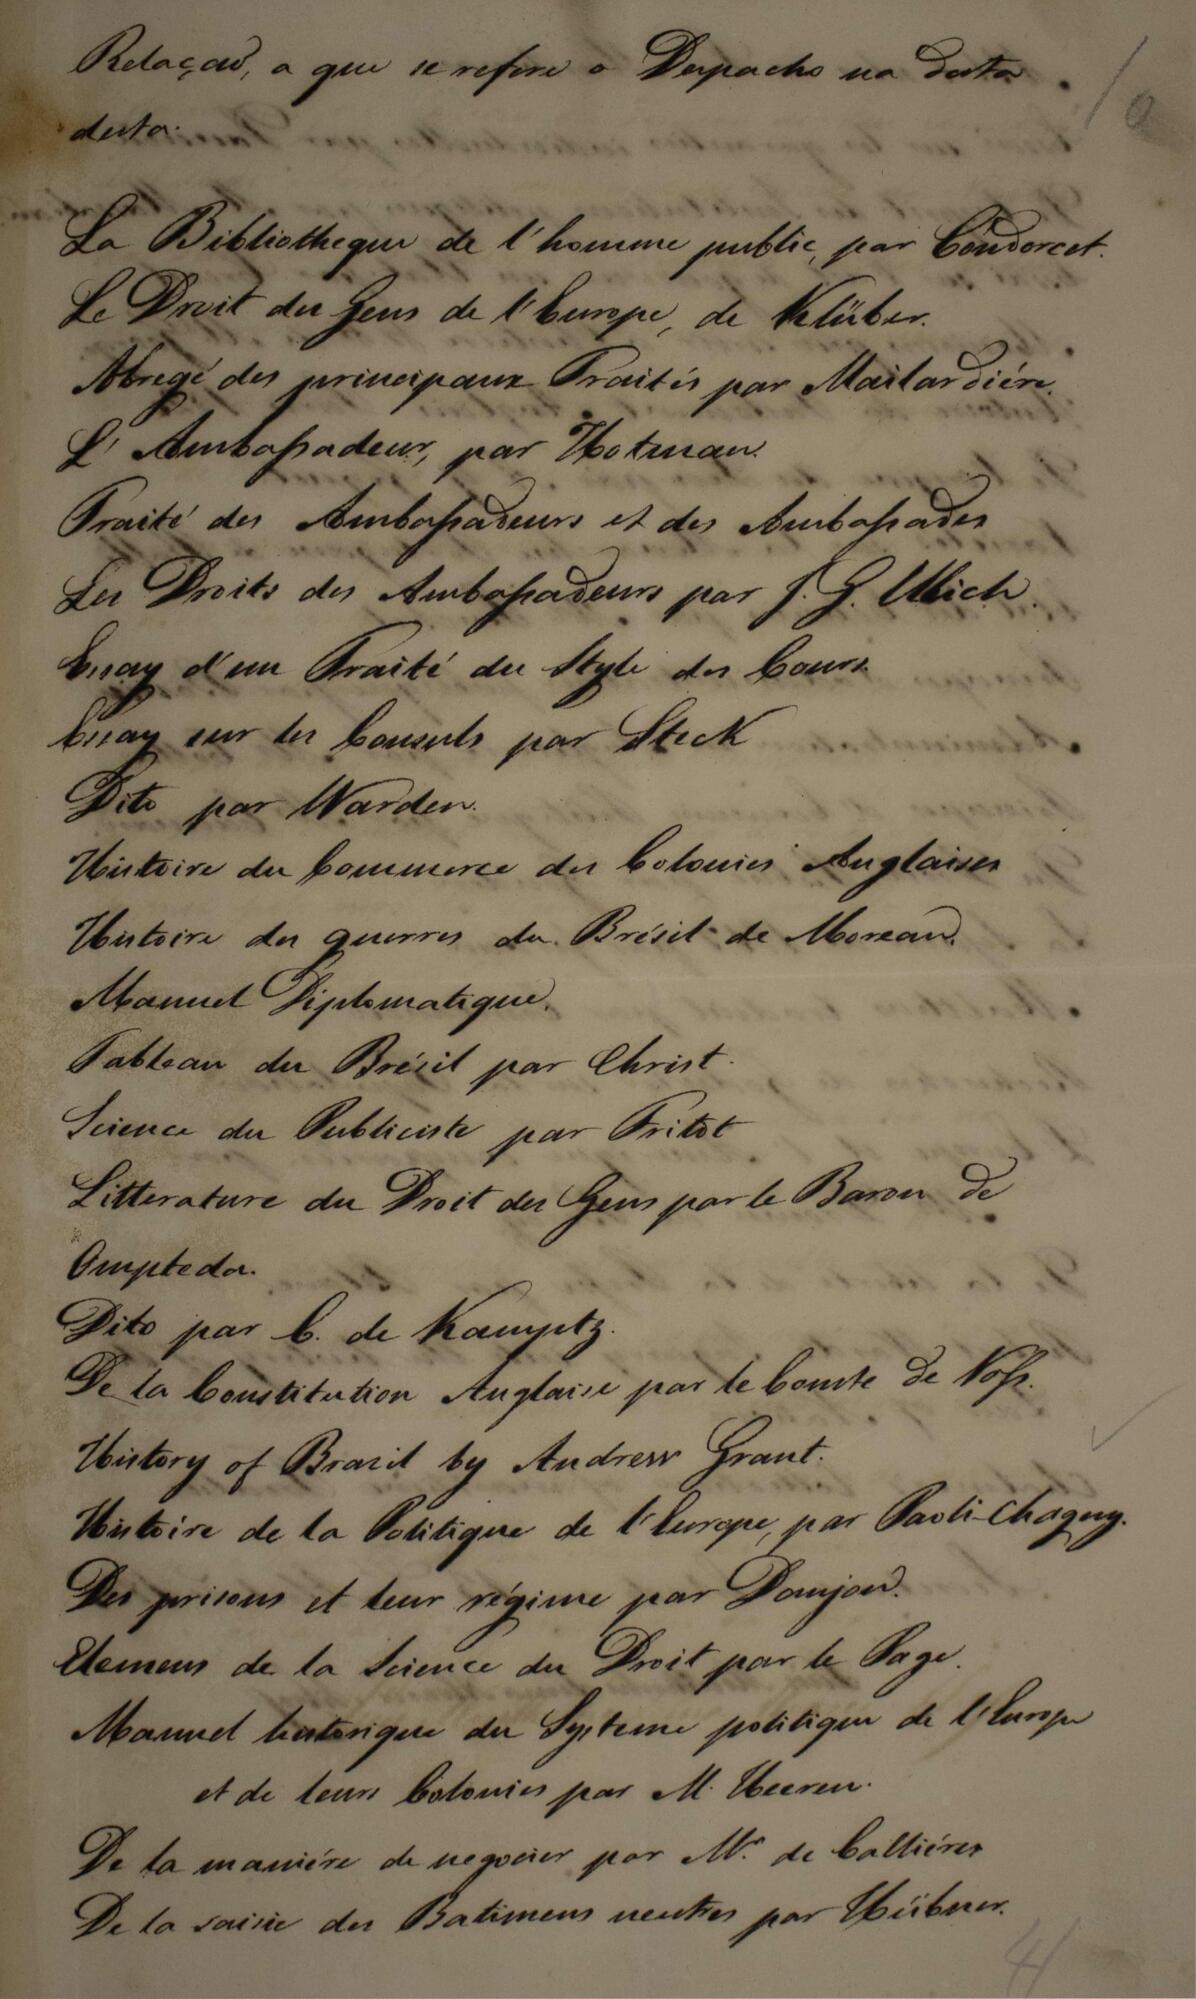 Relação, a que se refere o Despacho na data
desta.
La Bibliotheque de l'homme public, par Condorcet.
Le Droit des Gens de l'Europe, de Klüber.
Abregé des principaux Traités par Mailardiére.
L'Ambassadeur, par Hotman.
Traité des Ambassadeurs et des Ambassades
Les Droits des Ambassadeurs par J. G. Ulich.
Essay d'un Traité du Style des Cours
Essay sur les Consuls par Steck
Dito par Warden.
Histoire du Commerce des Colonies Anglaises
Histoire des guerres du Brésil de Moreau.
Manuel Diplomatique.
Tableau du Brésil par Christ.
Science du Publiciste par Fritot
Litterature du Droit des Gens par le Baron de
Ompteda.
Dito par C. de Kamptz.
De la Constitution Anglaise par le Comte de Noss.
History of Brazil by Andrew Grant.
Histoire de la Politique de l'Europe, par Paoli-Chagny.
Des prisons et leur régime par Danjou.
Elemens de la Science du Droit par le Page.
Manuel historique du Systeme politique de l'Europe
et de leurs Colonies par M. Heeren.
De la maniére de negocier par Mr. de Calliéres
De la saisie des Batimens neutres par Hübner.